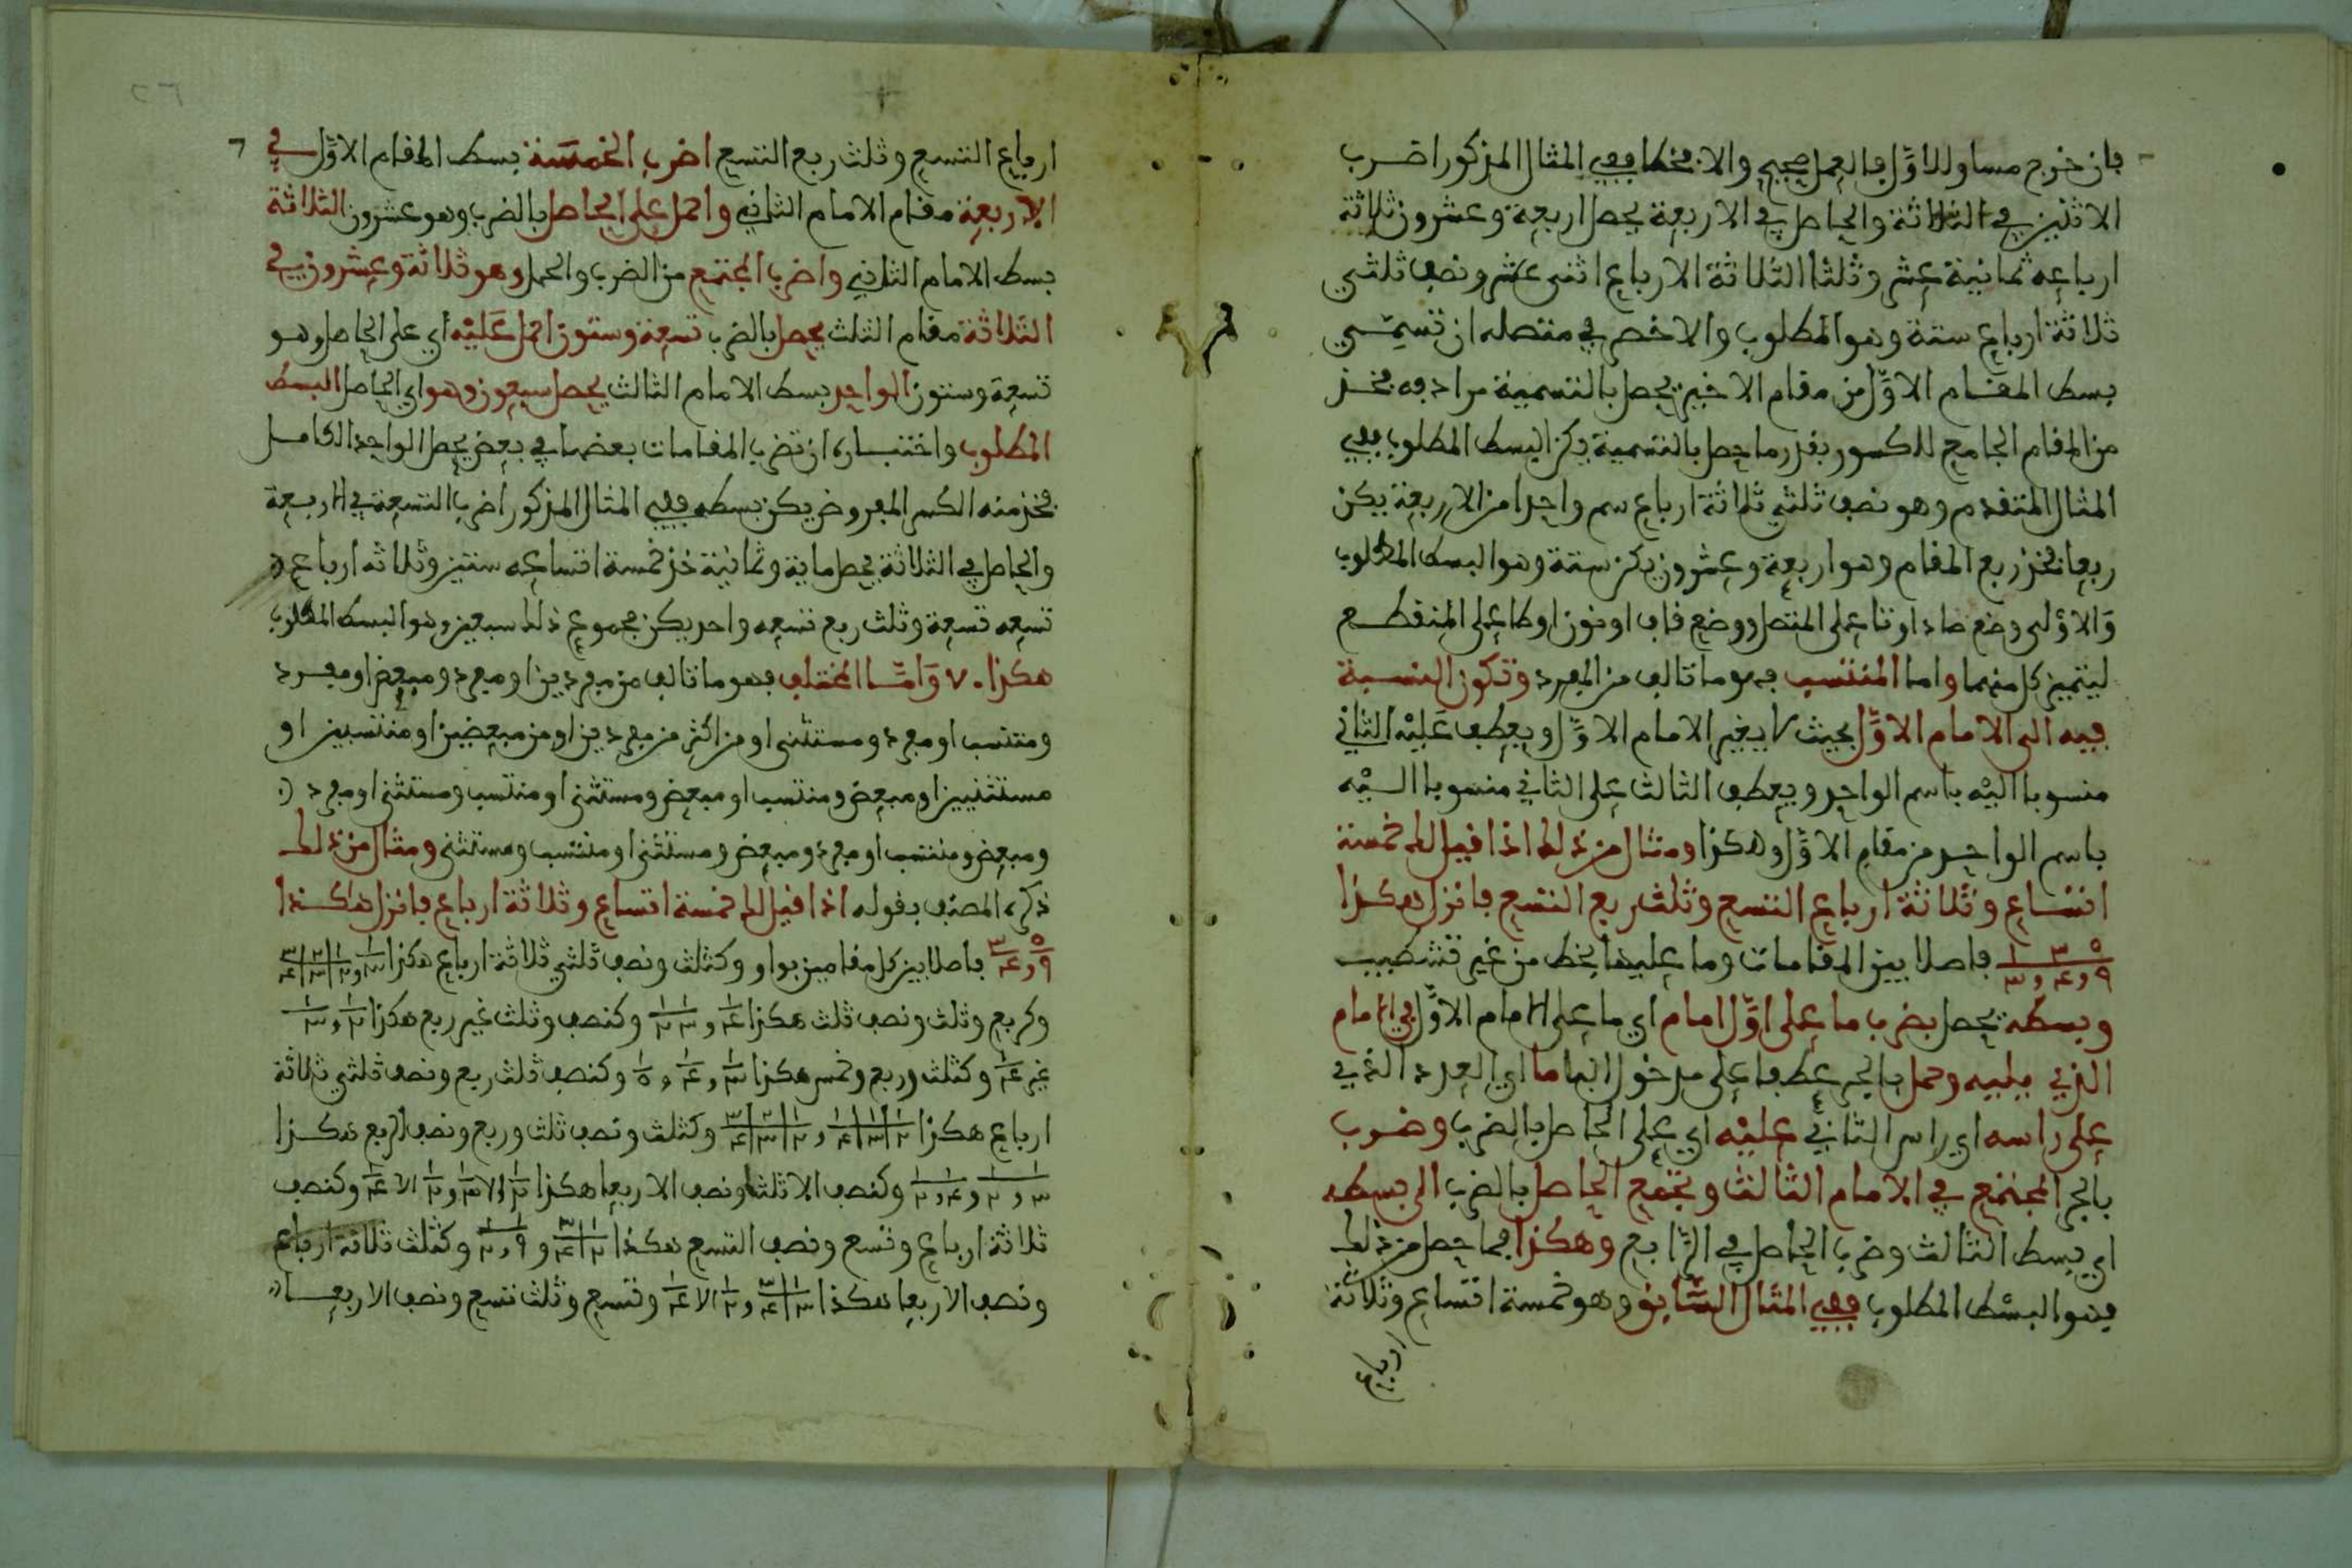 فإن خرج مساو للاول فالعمل صحيح والا فخطا ففي المثال المذكور اضرب
الاثنين في الثلاثة والحاصل في الاربعة يحصل اربعة وعشرون ثلاثة
ارباعه ثمانية عشر وثلثا الثلاثة الارباع اثنى عشر ونصف ثلثي
ثلاثة ارباع ستة وهو المطلوب والاخصر في متصله ان تسمي
بسط المقام الاوّل من مقام الاخير يحصل بالتسمية مرادفه فخذ
من المقام الجامع للكسور بقدر ما حصل بالتسمية يكن البسط المطلوب ففي
المثال المتقدم وهو نصف ثلثي ثلاثة ارباع سم واحدا من الاربعة يكن
ربعا فخذ ربع المقام وهو اربعة وعشرون يكن ستة وهو البسط المطلوب
وَالاوْلى وضع صاد او تا على المتصل ووضع قاف او نون او طا على المنقطع
ليتميز كل منهما واما المنتسب فهو ما تالف من المفرد وتكون النسبة
فيه الى الامام الاوّل بحيث لا يغير الامام الاوّل ويعطف عَليْه الثاني
منسوبا اليْه باسم الواحد ويعطف الثالث على الثاني منسوبا اليْه
باسم الواحد من مقام الاوّل وهكذا ومثال من ذلك اذا قيل لك خمسة
اتساع وثلاثة ارباع التسع وثلث ربع التسع فانزل هكذا
٥ ٣ ١ / ٩ و ٤ و ٣ فاصلا بين المقامات وما عليها بخط من غير تشطيب
وبسطه يحصل بضرب ما على اوّل امام اي ما على الامام الاوّل في الامام
الذي يليه وحمل بالجر عطفا على مدخول البا ما اي العدد الذي
على راسه اي راس الثاني عليْه اي على الحاصل بالضرب وضرب
بالجر المجتمع في الامام الثالث ويجمع الحاصل بالضرب الى بسطه
اي بسط الثالث وضرب الحاصل في الرّابع وهكذا فما حصل من ذلك
فهو البسْط المطلوب ففي المثال السّابق وهو خمسة اتساع وثلاثة
ارباع
ارباع التسع وثلث ربع التسع اضرب الخمسَة بسط المقام الاوّل في
الاربعة مقام الامام الثاني واحمل على الحاصل بالضرب وهو عشرون الثلاثة
بسط الامام الثاني واضرب المجتمع من الضرب والحمل وهو ثلاثة وعشرون في
الثلاثة مقام الثلث يحصل بالضرب تسعة وستون احمل عَليْه اي على الحاصل وهو
تسعة وستون الواحد بسط الامام الثالث يحصل سبعون وهو اي الحاصل البسط
المطلوب واختباره ان تضرب المقامات بعضها في بعض يحصل الواحد الكامل
فخذ منه الكسر المفروض يكن بسطه ففي المثال المذكور اضرب التسعة في الاربعة
والحاصل في الثلاثة يحصل ماية وثمانية خذ خمسة اتساعه ستين وثلاثه ارباع
تسعه تسعة وثلث ربع تسعه واحد يكن مجموع ذلك سبعين وهو البسط المطلوب
هكذا ٧٠ وَامّا المختلف فهو ما تالف من مفردين او مفرد ومبعض او مفرد
ومنتسب او مفرد ومستثنى او من اكثر من مفردين او من مبعضين او منتسبين او
مستثنيين او مبعض ومنتسب او مبعض ومستثنى او منتسب ومستثنى او مفرد
ومبعض ومنتسب او مفرد ومبعض ومستثنى او منتسب ومستثنى ومثال من ذلك
ذكره المصنف بقوله اذا قيل لك خمسة اتساع وثلاثة ارباع فانزل هكذا
٥/٩ و ٣/٤ فاصلا بين كل مقامين بواو وكثلث ونصف ثلثي ثلاثة ارباع هكذا ١/٣ و ١/٢ ٢/٣ ٣/٤
وكربع وثلث ونصف ثلث هكذا ١/٤ و ١ ١/٣ ٢ وكنصف وثلث غير ربع هكذا ١/٢ و ١/٣
غير ١/٤ وكثلث وربع وخمس هكذا ١/٣ و ١/٤ و ١/٥ وكنصف ثلث ربع ونصف ثلثي ثلاثة
ارباع هكذا ١/٢ ١/٣ ١/٤ و ١/٢ ٢/٣ ٣/٤ وكثلث ونصف ثلث وربع ونصف الربع هكذا
١ ١/٣ و ٢ و ١ ١/٤ و ٢ وكنصف الا ثلثا ونصف الا ربعا هكذا ١/٢ الا ١/٣ و ١/٢ الا ١/٤ وكنصف
ثلاثة ارباع وتسع ونصف التسع هكذا ١/٢ ٣/٤ و ١ ١/٩ و ٢ وكثلث ثلاثة ارباع
ونصف الا ربعا هكذا ١/٣ ٣/٤ و ١/٢ الا ١/٤ وتسع وثلث تسع ونصف الا ربعا